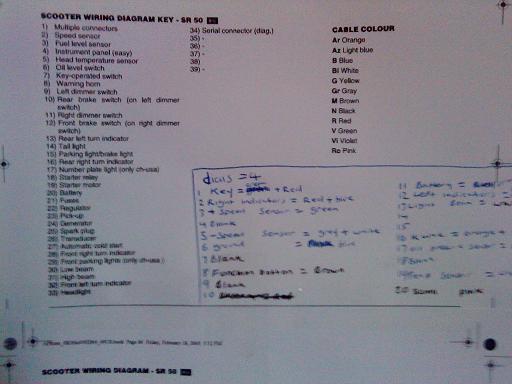 SCOOTER WIRING DIAGRAM KEY - SR 50
1) Multiple connectors
2) Speed sensor
3) Fuel level sensor
4) Instrument panel (easy)
5) Head temperature sensor
6) Oil level switch
7) Key-operated switch
8) Warning horn
9) Left dimmer switch
10) Rear brake switch (on left dimmer
switch)
11) Right dimmer switch
12) Front brake switch (on right dimmer
switch)
13) Rear left turn indicator
14) Tail light
15) Parking light/brake light
16) Rear right turn indicator
17) Number plate light (only ch-usa)
18) Starter relay
19) Starter motor
20) Battery
21) Fuses
22) Regulator
23) Pick-up
24) Generator
25) Spark plug
26) Transducer
27) Automatic cold start
28) Front right turn indicator
29) Front parking lights (only ch-usa)
30) Low beam
31) High beam
32) Front left turn indicator
33) Headlight
34) Serial connector (diag.)
35) -
36) -
37) -
38)
39) -
CABLE COLOUR
Ar Orange
Az Light blue
B Blue
Bi White
G Yellow
Gr Gray
M Brown
N Black
R Red
V Green
Vi Violet
Ro Pink
= 4
1 Key = + Red
2 Right indicators = Red + blue
3 + Speed sensor = green
4 Blank
5 - Speed sensor = grey + white
6 ground = blue
7 Blank
8 Function button = Brown
9 Blank
10
11 Battery =
12 Left indicators =
13 Light =
14
15
16 = orange +
17 sensor =
18 Blank
19 Sensor =
20 pink
SCOOTER WIRING DIAGRAM - SR 50